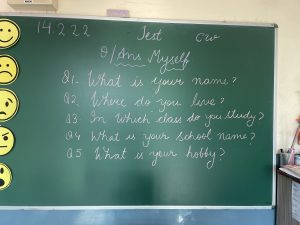 14.2.22 Test CW
Q/Ans Myself
Q1. What is your name?
Q2. Where do you live?
Q3. In Which class do you study?
Q4 What is your school name?
Q5. What is your hobby?